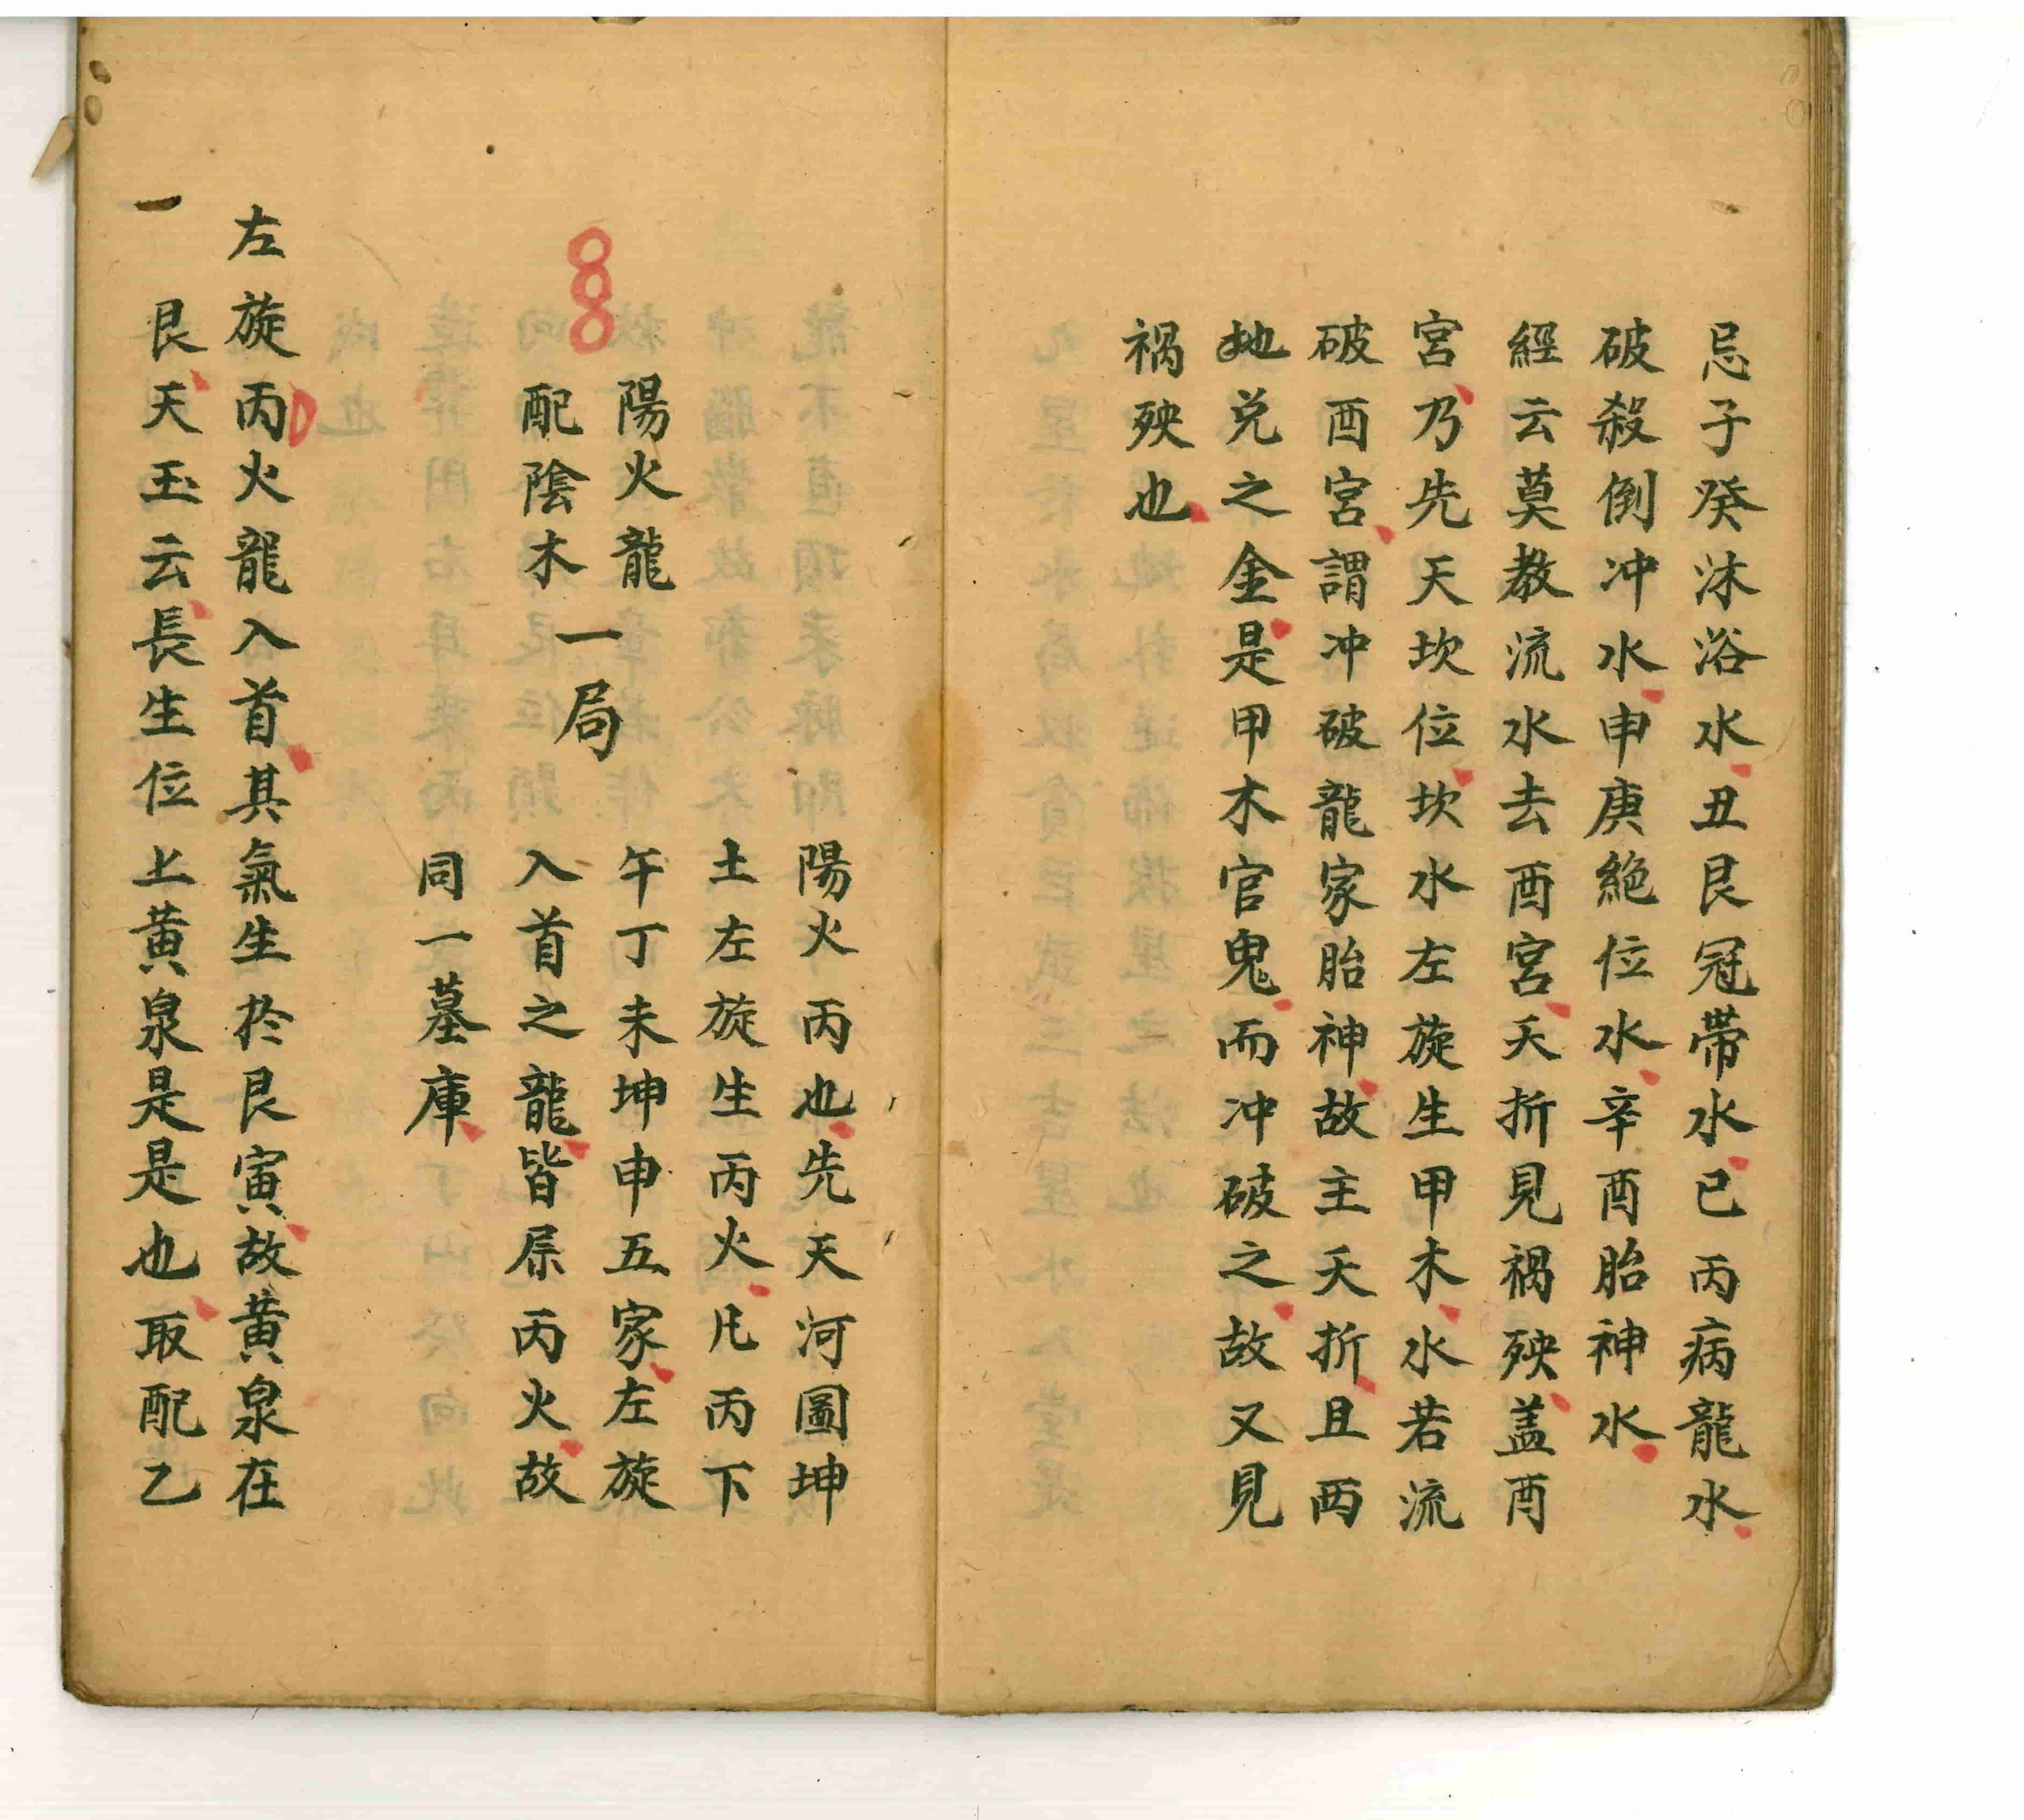 忌子癸沐浴水丑艮冠帶水已丙病龍水
破殺倒冲水申庚絕位水辛酉胎神水
經云莫教流水去酉宮夭折見禍殃盖酉
宮乃先天坎位坎水左旋生甲木水若流
破酉宮謂冲破龍家胎神故主夭折且酉
地兌之金是甲木官鬼而冲破之故又見
禍殃也
陽火丙也先天河圖坤
土左旋生丙火凡丙下
午丁未坤申五家左旋
入首之龍皆屬丙火故
同一墓庫
陽火龍
配陰木
一局
左旋丙火龍入首其氣生於艮寅故黃泉在
一艮天玉云長生位上黃泉是是也取配乙